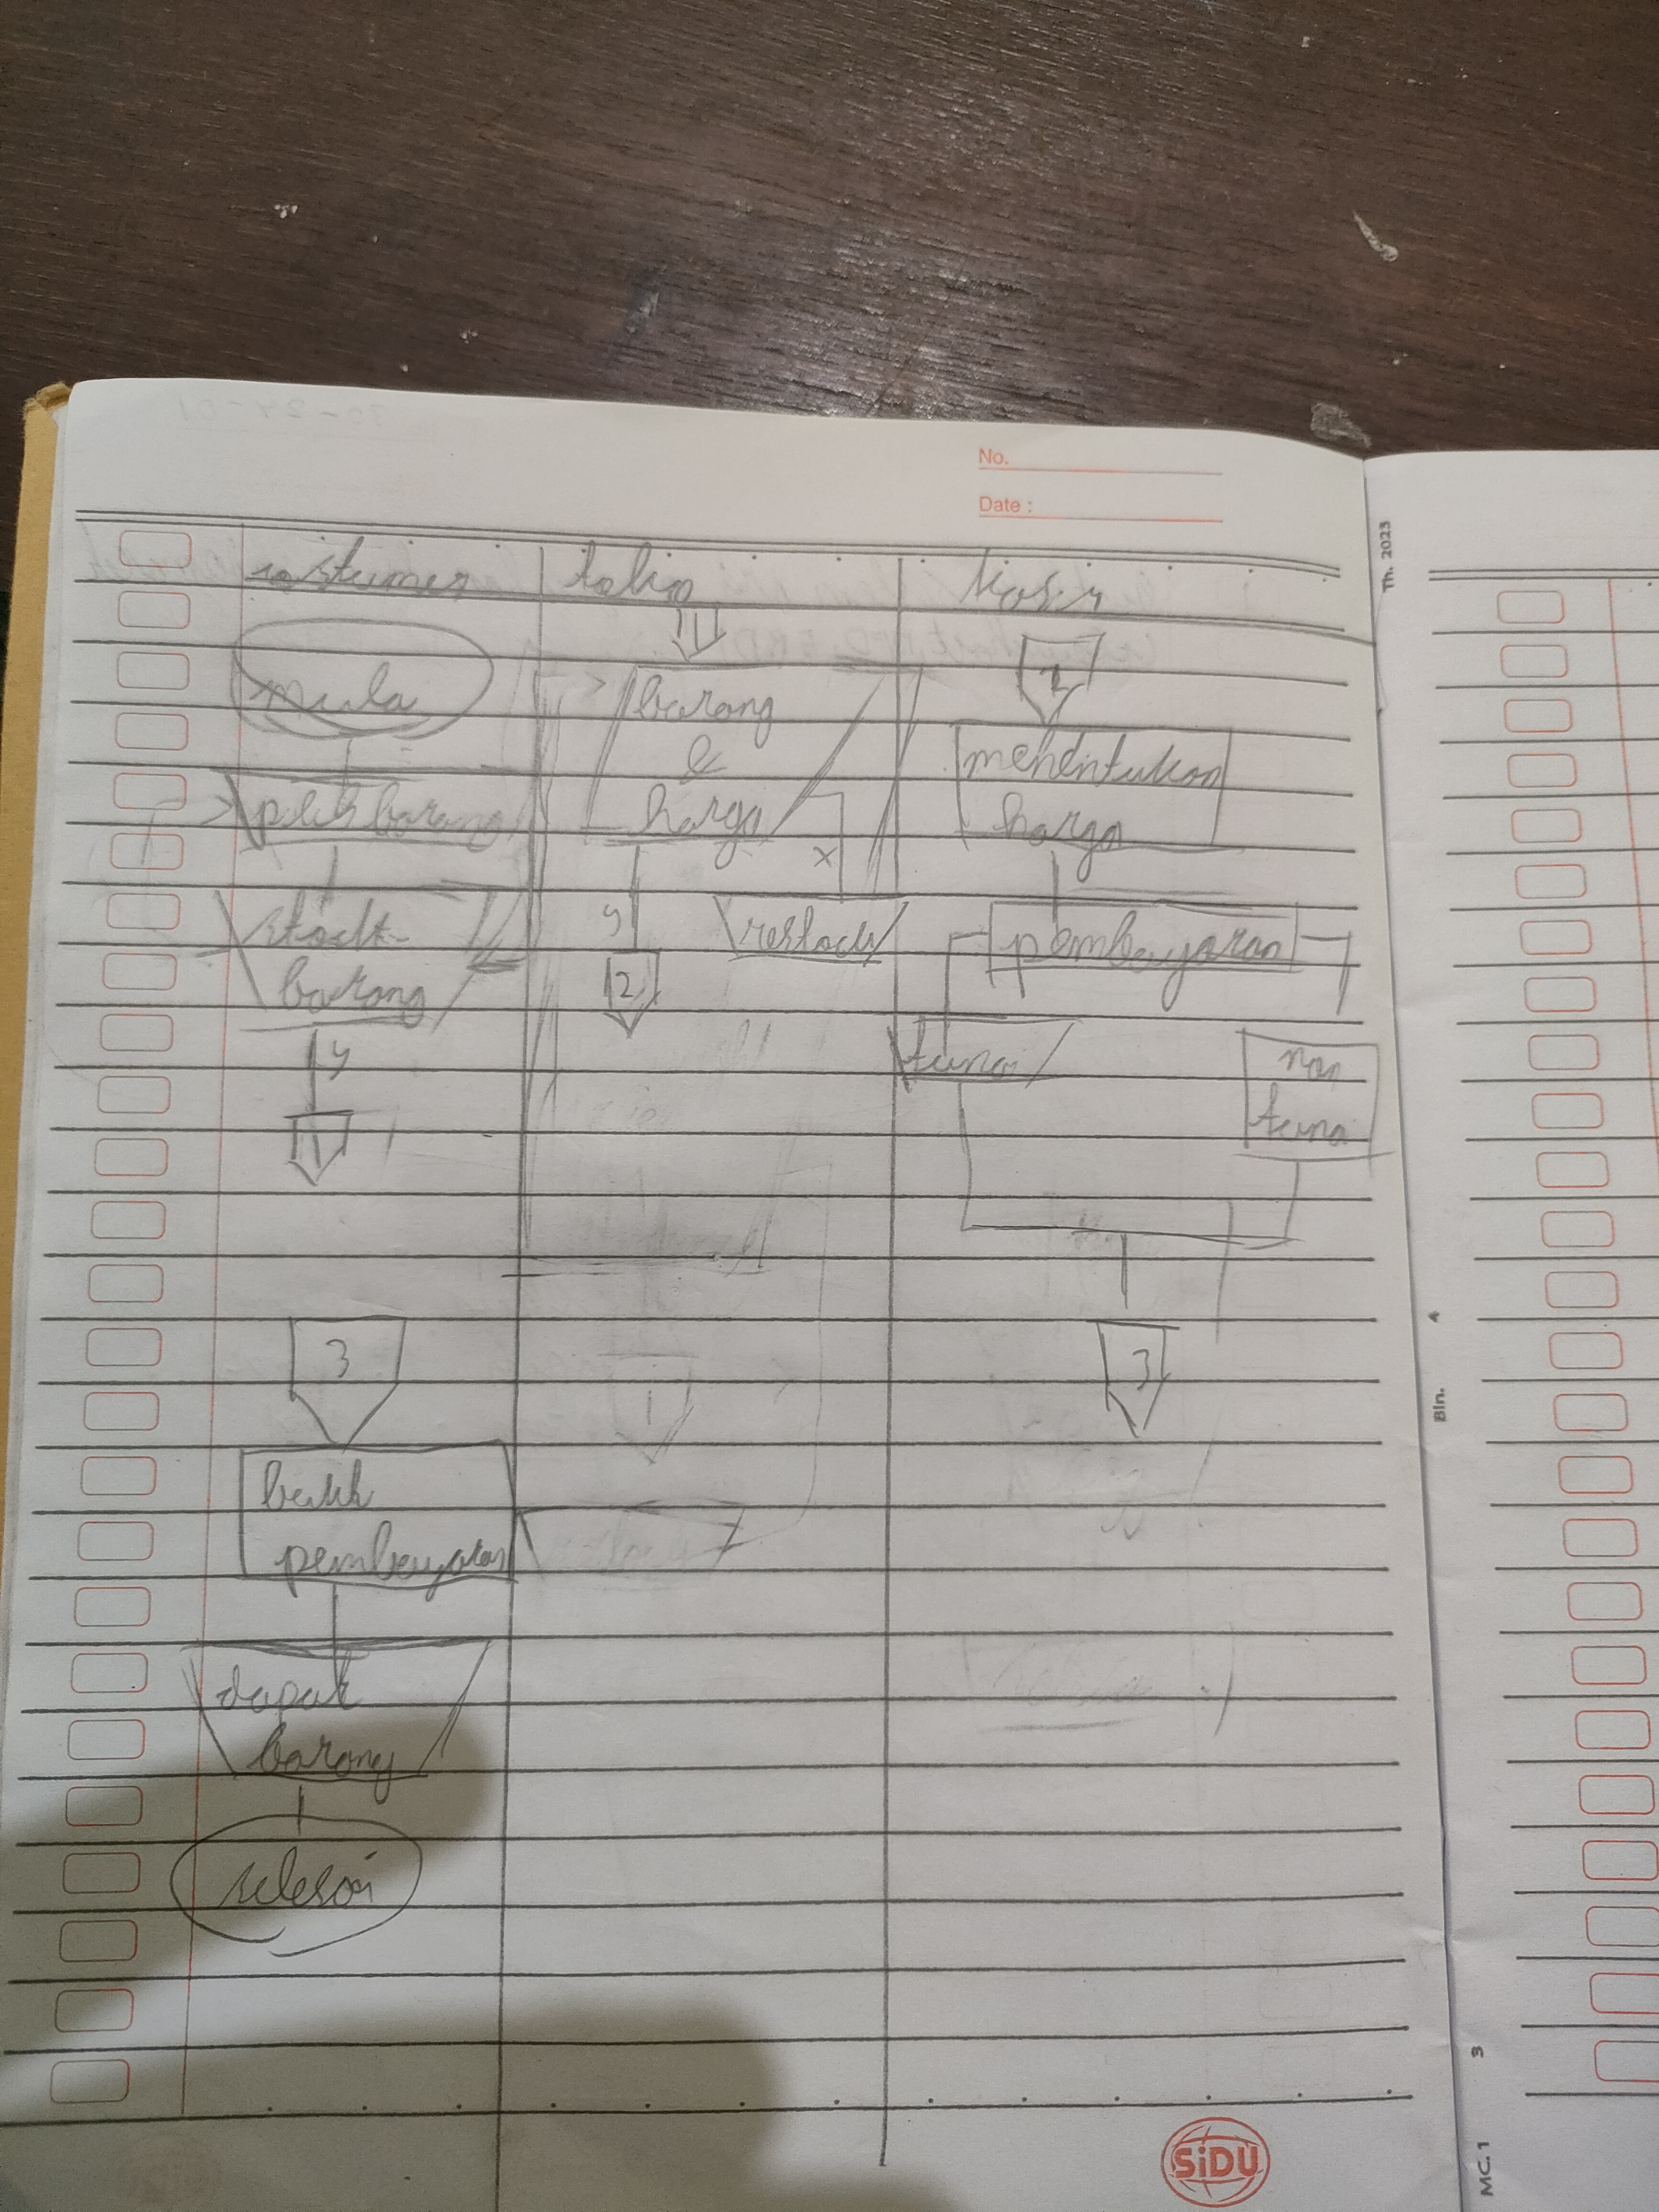 No.
Date :
costumer toko kasir
mula
barang
&
harga
2
menentukan
harga
pilih barang
x
stock
barang
y
2
restock
pembayaran
y
1
tunai
non
tunai
3
3
1
bukti
pembayaran
dapat
barang
selesai
Th. 2023
Bln. 4
MC.1 3
SiDU